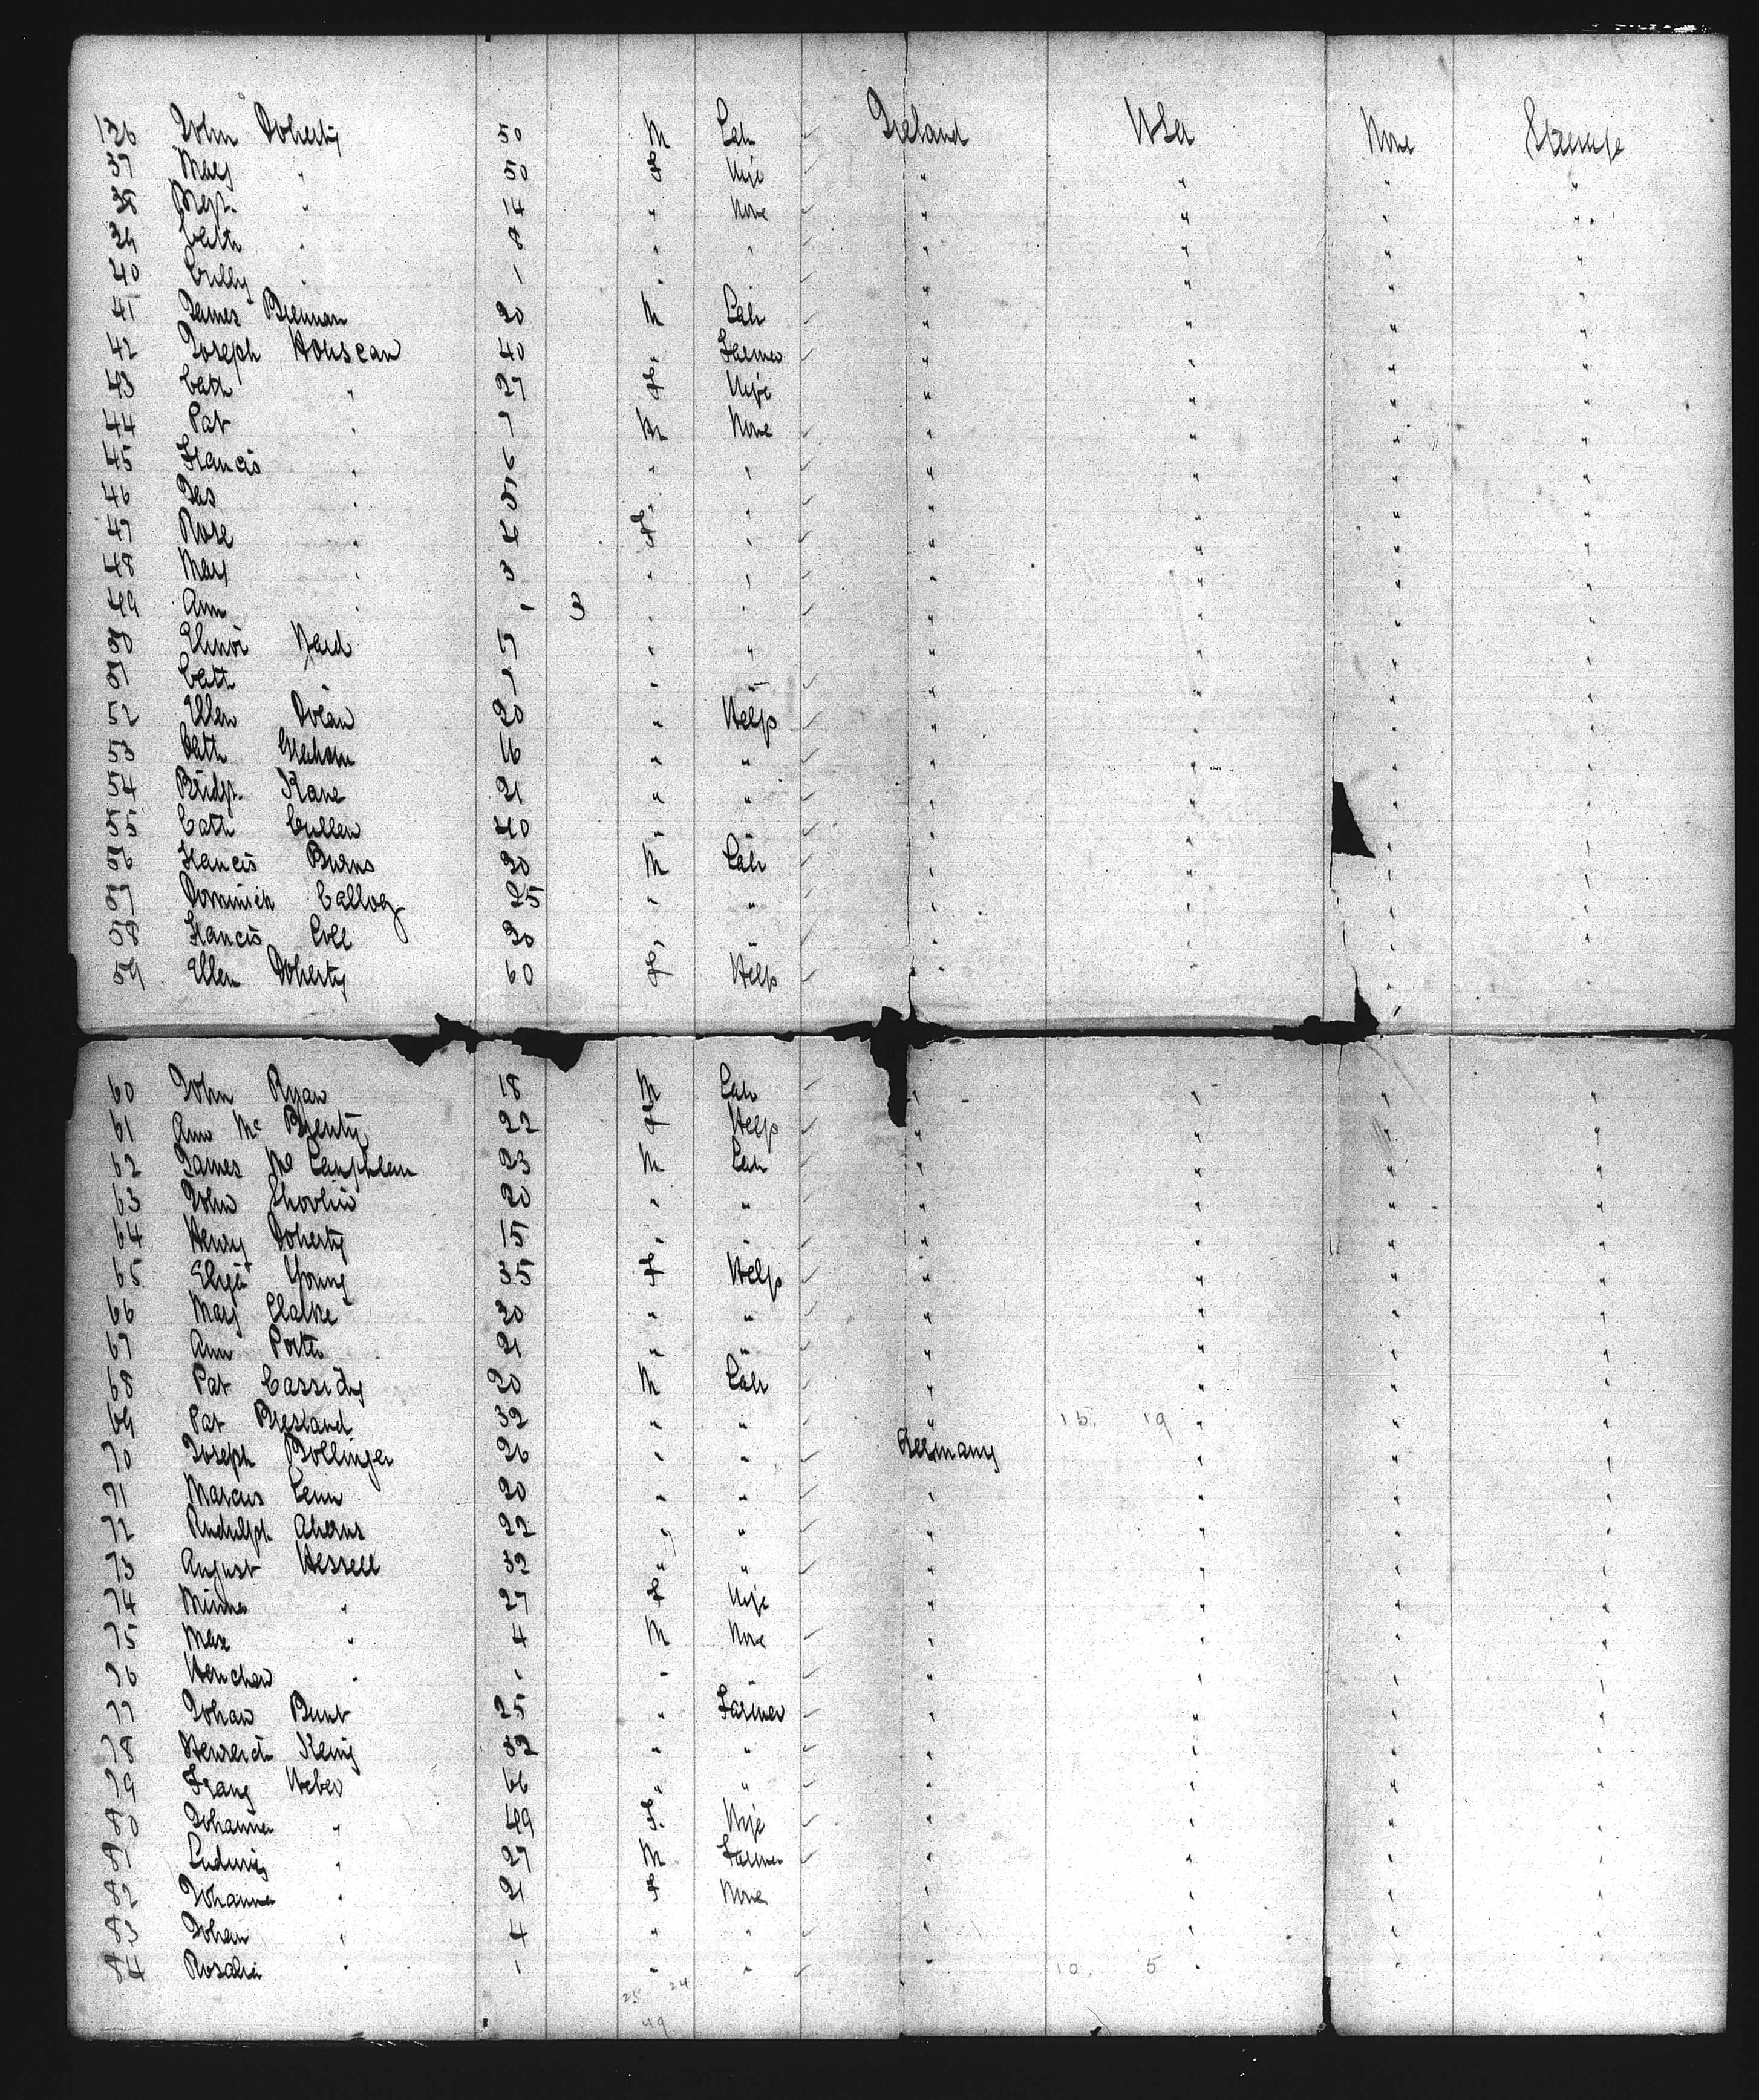 136 John Doherty 50 M Lab Ireland USA None Steerage
37 Mary " 50 F Wife " " " "
38 Bridgt. " 14 " None " " " "
39 Cath " 8 " " " " " "
40 " 1 " " " " "
41 James Brennan 20 M Lab " " " "
42 Joseph 40 " Farmer " " " "
43 Cath " 27 F Wife " " " "
44 Pat " 7 M None " " " "
45 Francis " 6 " " " " " "
46 Jas " 5 " " " " " "
47 Rose " 4 F " " " " "
48 Mary " 3 " " " " " "
49 Ann " " 3 " " " " " "
50 Ward 5 " " " " " "
51 Cath " 7 " " " " " "
52 Ellen Dolan 20 " Help " " " "
53 Cath 16 " " " " " "
54 Bridgt. Kane 21 " " " " " "
55 Cath Cullen 40 " " " " " "
56 Francis Burns 20 M Lab " " " "
57 Dominick 25 " " " " " "
58 Francis Coll 20 " " " " " "
59 Ellen Doherty 60 F Help " " " "
60 John Ryan 18 M Lab " " " "
61 Ann Mc 22 F Help " " " "
62 James Mc 23 M Lab " " " "
63 John Shovlin 20 " " " " " "
64 Henry Doherty 15 " " " " " "
65 Eliza Young 35 F Help " " " "
66 Mary Clarke 30 " " " " " "
67 Ann Porter 21 " " " " " "
68 Pat Cassidy 20 M Lab " " " "
69 Pat Bresland 32 " " " 15. 19 " " "
70 Joseph Bollinger 26 " " Germany " " "
71 Marcus 20 " " " " " "
72 Rudolph Aherns 22 " " " " " "
73 August Hessell 32 " " " " " "
74 Minna " 27 F Wife " " " "
75 Max " 4 M None " " " "
76 " " " " " " " "
77 Johan 25 " Farmer " " " "
78 32 " " " " " "
79 Franz Weber 66 " " " " " "
80 Johanna " 49 F Wife " " " "
81 Ludwig " 27 M Farmer " " " "
82 Johanna " 21 F None " " " "
83 Johan " 4 " " " " " "
84 Rosalie " 1 " " " 10. 5 " " "
25 24
49